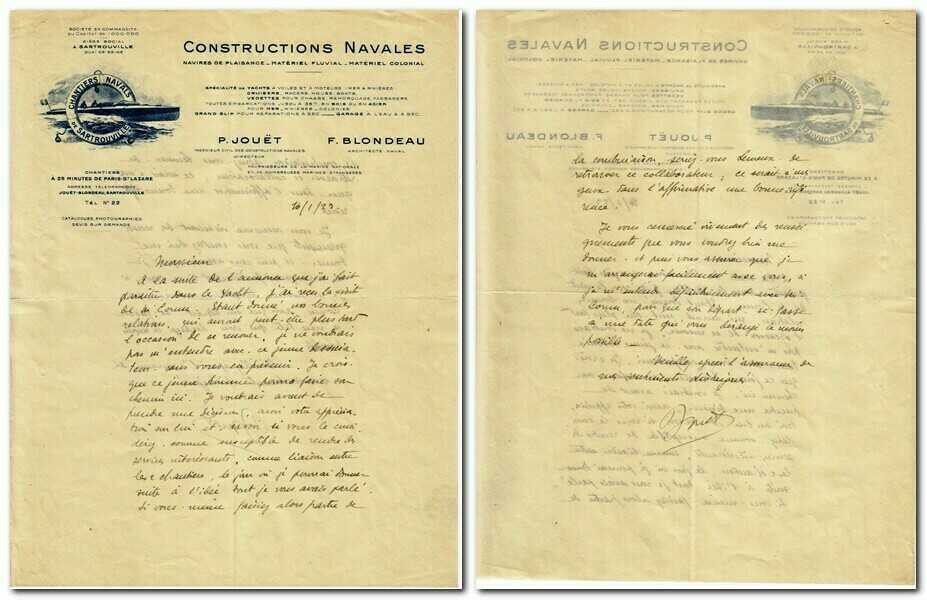 SOCIÉTÉ EN COMMANDITE
AU CAPITAL DE 1.000.000
SIÈGE SOCIAL
A SARTROUVILLE
QUAI DE SEINE
CHANTIERS NAVALS
DE SARTROUVILLE
CHANTIERS
A 25 MINUTES DE PARIS-ST LAZARE
ADRESSE TÉLÉGRAPHIQUE
JOUËT-BLONDEAU, SARTROUVILLE
TÉL. N° 22
CATALOGUES, PHOTOGRAPHIES
DEVIS SUR DEMANDE
CONSTRUCTIONS NAVALES
NAVIRES DE PLAISANCE _ MATÉRIEL FLUVIAL _ MATÉRIEL COLONIAL
SPÉCIALITÉ DE YACHTS A VOILES ET A MOTEURS : MER & RIVIÈRES
CRUISERS, RACERS, HOUSE BOATS,
VEDETTES POUR CHASSE, REMORQUAGE, PASSAGERS
TOUTES EMBARCATIONS JUSQU'A 35M EN BOIS OU EN ACIER
POUR MER, RIVIÈRES, COLONIES
GRAND SLIP POUR RÉPARATIONS A SEC GARAGE A L'EAU & A SEC
P. JOUËT
INGÉNIEUR CIVIL DES CONSTRUCTIONS NAVALES
DIRECTEUR
F. BLONDEAU
ARCHITECTE NAVAL
FOURNISSEURS DE LA MARINE NATIONALE
ET DE NOMBREUSES MARINES ÉTRANGÈRES
Monsieur
A la suite de l'annonce que j'ai fait
paraître dans le Yacht, j'ai reçu la visite
de Mr Cornu. Étant donné nos bonnes
relations, qui auront peut-être plus tard
l'occasion de se renouer, je ne voudrais
pas m'entendre avec ce jeune dessina-
teur sans vous en prévenir. Je crois
que ce jeune homme pourra faire son
chemin ici. Je voudrais avant de
prendre une décision, avoir votre apprécia-
tion sur lui et savoir si vous le consi-
dérez comme susceptible de rendre des
services intéressants, comme liaison entre
les 2 chantiers, le jour où je pourrai donner
suite à l'idée dont je vous avais parlé.
Si vous-même faisiez alors partie de
la combinaison, seriez-vous heureux de
retrouver ce collaborateur ; ce serait à mes
yeux dans l'affirmative une bonne réfé-
rence.
Je vous remercie vivement des rensei-
gnements que vous voudrez bien me
donner et puis vous assurer que je
m'arrangerai facilement avec vous, si
je m'entends définitivement avec Mr
Cornu, pour que son départ se fasse
à une date qui vous dérange le moins
possible.
Veuillez agréer l'assurance de
mes sentiments distingués